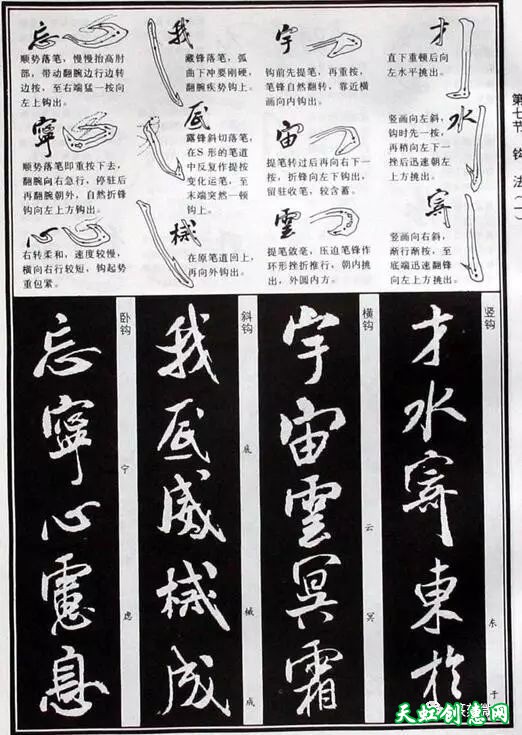 第七节 钩法(一)
才
直下重顿后向
左水平挑出。
水
竖画向左斜，
钩时先一按，
再稍向左下一
挫后迅速朝左
上方挑出。
寄
竖画向右斜，
渐行渐按，至
底端迅速翻锋
向左上方挑出。
宇
钩前先提笔，再重按，
笔锋自然翻转，靠近横
画向内钩出。
宙
提笔转过后再向右下一
按，折锋向左下钩出，
留驻收笔，较含蓄。
雲
提笔敛毫，压迫笔锋作
环形挫折推行，朝内挑
出，外圆内方。
我
藏锋落笔，弧
曲下冲要刚硬，
翻腕疾势钩上。
底
露锋斜切落笔，
在 S 形的笔道
中反复作提按
变化运笔，至
末端突然一顿
钩上。
械
在原笔道回上，
再向外钩出。
忘
顺势落笔，慢慢抬高肘
部，带动翻腕边行边转
边按，至右端猛一按向
左上钩出。
寧
顺势落笔即重按下去，
翻腕向右急行，停驻后
再翻腕朝外，自然折锋
钩向左上方钩出。
心
右转柔和，速度较慢，
横向右行较短，钩起势
重包紧。
竖钩
才水寄東於
东 于
横钩
宇宙雲冥霜
云 冥
斜钩
我底威械成
底 械 成
卧钩
忘寧心慮息
宁 虑
天虹创意网